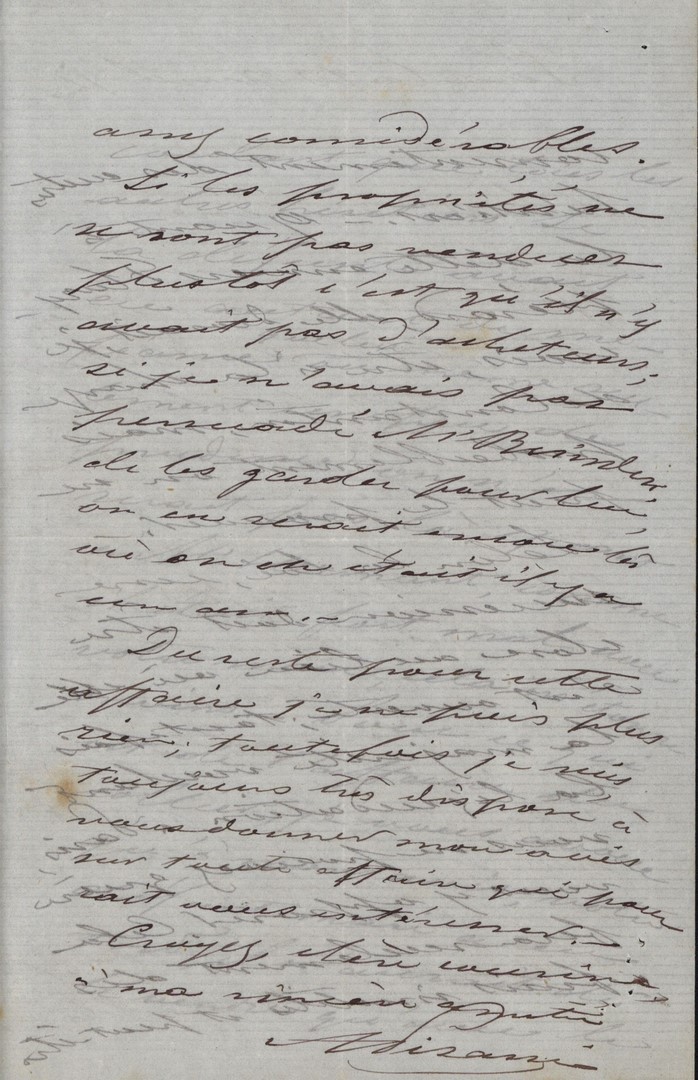 assez considérables.
Si les propriétés ne
se sont pas vendues
plustôt c'est qu'il n'y
avait pas d'acheteurs,
si je n'avais pas
persuadé Mr
de les garder pour lui
on en serait encore là
où on en était il y a
un an. -
Du reste pour cette
affaire je ne puis plus
rien; toutefois je suis
toujours très disposé à
vous donner mon avis
sur toute affaire qui pour
rait vous intéresser. -
Croyez, chère cousine,
à ma sincère amitié